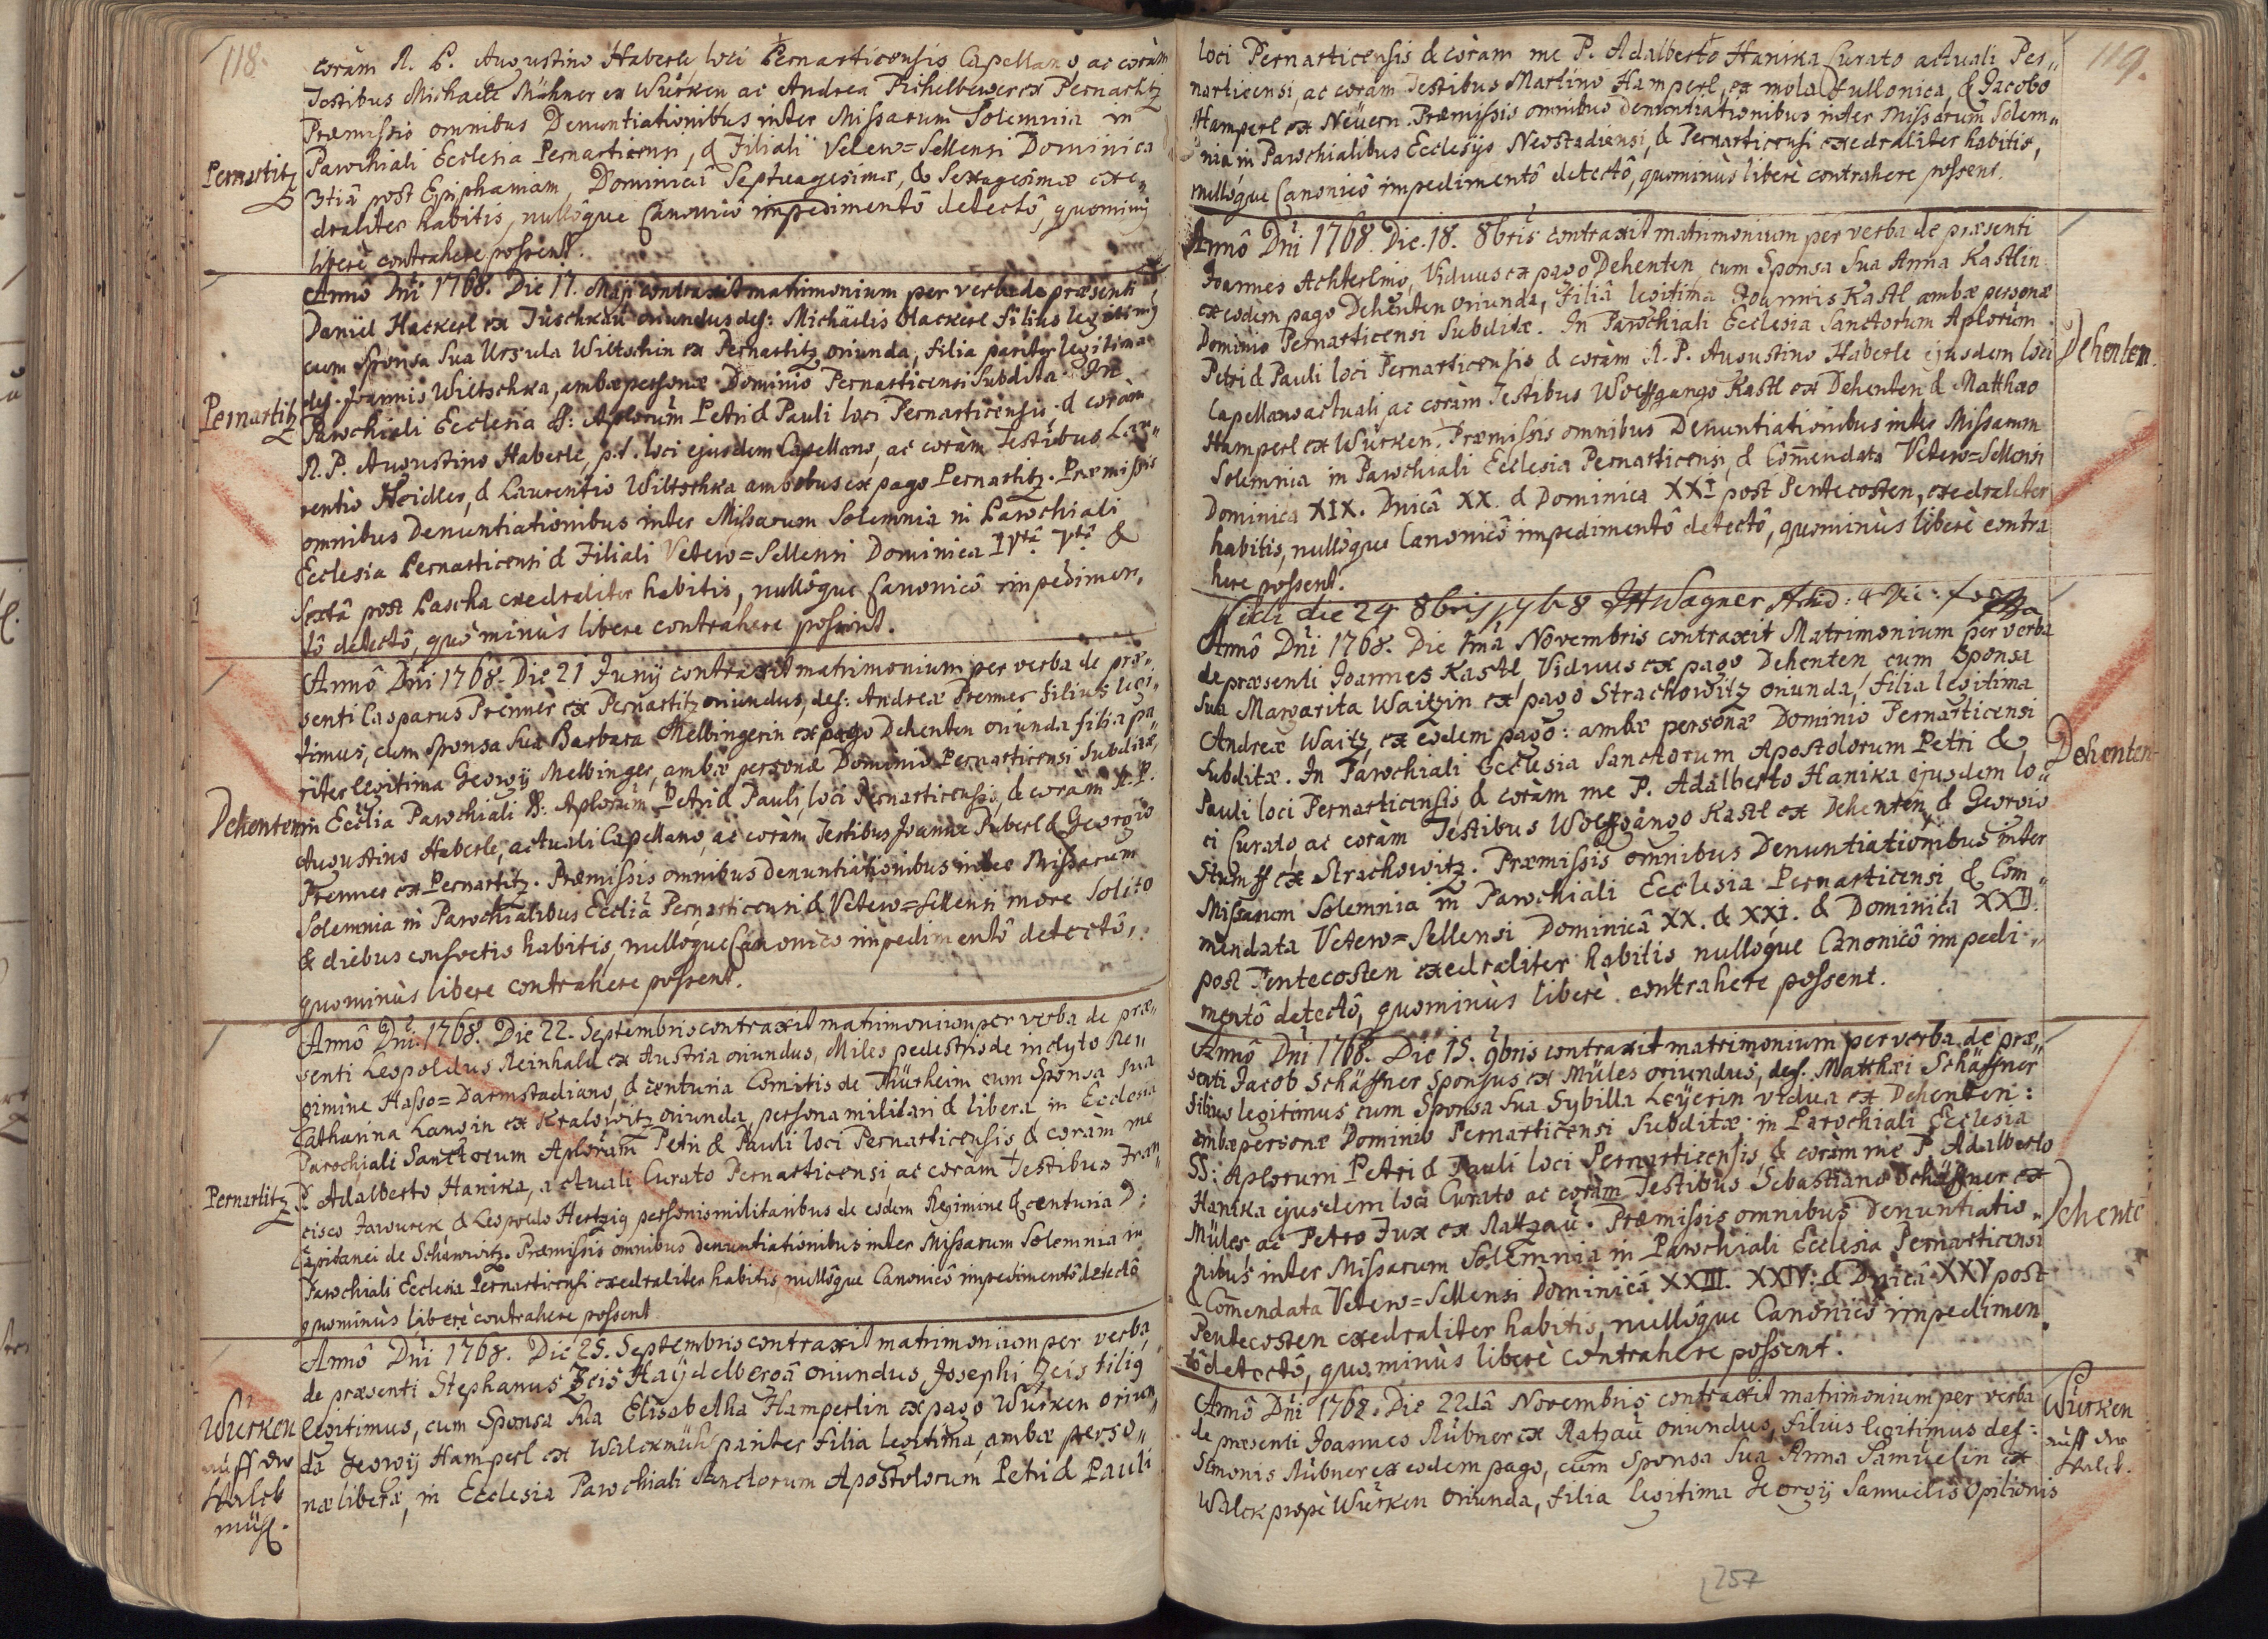 118.
coràm R. P. Augustino Haberle loci Pernarticensis Capellano ac coràm
Testibus Michaele Mähner ex Würken ac Andrea Pichelbewer ex Pernartitz
Præmissis omnibus Denuntiationibus inter Missarum Solemnia in
Parochiali Ecclesia Pernarticensi, & Filiali Vetero=Sellensi Dominica
Pernartitz
3tiâ post Epiphaniam, Dominicâ Septuagesimæ, & Sexagesimæ exe„
draliter habitis, nullôque Canonicô impedimentô detectô, quominùs
liberè contrahere possent.
Annô Dni 1768. Die 17. Maji contraxit matrimonium per verba de præsenti
Daniel Hackerl ex Tuschkau oriundus def: Michaëlis Hackerl filius legitimus
cum Sponsa Sua Ursula Wiltschin ex Pernartitz oriunda, filia pariter legitima
def. Joannis Wiltschka, ambæ personæ Dominio Pernarticensi Subditæ. In
Pernartitz
Parochiali Ecclesia SS: Aplorum Petri & Pauli loci Pernarticensis & coràm
R. P. Augustino Haberle, p.t. loci ejusdem Capellano, ac coràm Testibus Lau„
rentio Heidler, & Laurentio Wiltschka ambobus ex pago Pernartitz. Præmissis
omnibus Denuntiationibus inter Missarum Solemnia in Parochiali
Ecclesia Pernarticensi & Filiali Vetero=Sellensi Dominica IVtâ Vtâ &
Sextâ post Pascha exedraliter habitis, nullôque Canonicô impedimen„
tô detectô, quominùs libere contrahere possent.
Annô Dni 1768. Die 21 Junij contraxit matrimonium per verba de præ„
senti Casparus Prenner ex Pernartitz oriundus, def: Andreæ Prenner filius legi„
timus, cum Sponsa Sua Barbara Melbingerin ex pago Dehenten oriunda filia pa„
riter legitima Georgij Melbinger, ambæ personæ Dominio Pernarticensi Subditæ,
Dehenten
in Ecclia Parochiali SS: Aplorum Petri & Pauli, loci Pernarticensis, & coràm R. P.
Augustino Haberle, actuali Capellano, ac coràm Testibus Joanne Puberl & Georgio
Prenner ex Pernartitz. Præmissis omnibus denuntiationibus inter Missarum
Solemnia in Parochialibus Ecclia Pernarticensi & Vetero=Sellensi more Solito
& diebus consuetis habitis, nullôque Canonico impedimentô detectô,
quominùs libere contrahere possent.
Annô Dni 1768. Die 22. Septembris contraxit matrimonium per verba de præ„
senti Leopoldus Reinhald ex Austria oriundus, Miles pedestris de inclyto Re„
gimine Hasso=Darmstadiano, & centuria Comitis de Thürheim cum Sponsa Sua
Catharina Langin ex Kralowitz oriunda, persona militari & libera, in Ecclesia
Parochiali Sanctorum Aplorum Petri & Pauli loci Pernarticensis & coràm me
Pernartitz
P. Adalberto Hanika, actuali Curato Pernarticensi ac coràm Testibus Fran„
cisco Jawurek & Leopoldo Hertzig personis militaribus de eodem Regimine & centuria D:
Capitanei de Schenwitz. Præmissis omnibus denuntiationibus inter Missarum Solemnia in
Parochiali Ecclesia Pernarticensi exedraliter habitis, nullôque Canonicô impedimentô detectô
quominùs liberè contrahere possent
Annô Dni 1768. Die 25. Septembris contraxit matrimonium per verba
de præsenti Stephanus Zeis Haydelbergâ oriundus, Josephi Zeis filius
Würken
auff der
Walck
mühl.
legitimus, cum Sponsa Sua Elisabetha Hamperlin ex pago Würken oriun„
da Georgij Hamperl ex Walckmühl pariter filia legitima, ambæ perso„
næ liberæ, in Ecclesia Parochiali Sanctorum Apostolorum Petri & Pauli
119.
loci Pernarticensis & coràm me P. Adalberto Hanika Curato actuali Per„
narticensi, ac coràm Testibus Martino Hamperl, ex mola Fullonica, & Jacobo
Hamperl ex Neüern. Præmissis omnibus denuntiationibus inter Missarum Solem„
nia in Parochialibus Ecclesijs Neostadiensi, & Pernarticensi exedraliter habitis,
nullôque Canonicô impedimentô detectô, quominùs liberè contrahere possent.
Annô Dni 1768. Die 18. 8bris contraxit matrimonium per verba de præsenti
Joannes Achterling, Viduus ex pago Dehenten, cum Sponsa Sua Anna Kastlin
ex eodem pago Dehenten oriunda, Filiâ legitima Joannis Kastl ambæ personæ
Dominio Pernarticensi Subditæ. In Parochiali Ecclesia Sanctorum Aplorum
Petri & Pauli loci Pernarticensis & coràm R. P. Augustino Haberle ejusdem loci
Dehenten.
Capellano actuali ac coràm Testibus Wolffgango Kastl ex Dehenten & Matthæo
Hamperl ex Würken. Præmissis omnibus Denuntiationibus inter Missarum
Solemnia in Parochiali Ecclesia Pernarticensi, & Com̄endata Vetero=Sellensi
Dominica XIX. Dnicâ XX. & Dominica XXI post Pentecosten, exedraliter
habitis, nullôque Canonicô impedimentô detectô, quominùs liberè contra
here possent.
Vidi die 24 8bris 1768 JH Wagner
Annô Dni 1768. Die 1mâ Novembris contraxit Matrimonium per verba
de præsenti Joannes Kastl, Viduus ex pago Dehenten cum Sponsa
Sua Margarita Waitzin ex pago Strachowitz oriunda, filia legitima
Andreæ Waitz, ex eodem pago: ambæ personæ Dominio Pernarticensi
Subditæ. In Parochiali Ecclesia Sanctorum Apostolorum Petri &
Dehenten
Pauli loci Pernarticensis, & coràm me P. Adalberto Hanika ejusdem lo„
ci Curato, ac coràm Testibus Wolffgango Kastl ex Dehenten, & Georgio
Stumff ex Strachowitz. Præmissis omnibus Denuntiationibus inter
Missarum Solemnia in Parochiali Ecclesia Pernarticensi & Com„
mendata Vetero=Sellensi Dominicâ XX. & XXI. & Dominica XXII.
post Pentecosten exedraliter habitis nullôque Canonicô impedi„
mentô detectô, quominùs liberè contrahere possent.
Annô Dni 1768. Die 15. 9bris contraxit matrimonium per verba de præ„
senti Jacob Schäffner Sponsus ex Müles oriundus, def. Matthæi Schäffner
filius legitimus cum Sponsa Sua Sybilla Leÿerin vidua ex Dehenten:
ambæ personæ Dominio Pernarticensi Subditæ in Parochiali Ecclesia
SS: Aplorum Petri & Pauli loci Pernarticensis, & coràm me P. Adalberto
Hanika ejusdem loci Curato ac coràm Testibus Sebastiano Schäffner ex
Dehentē
Müles ac Petro Fux ex Ratzau. Præmissis omnibus Denuntiatio„
nibus inter Missarum Solemnia in Parochiali Ecclesia Pernarticensi
& Com̄endata Vetero=Sellensi Dominicâ XXIII. XXIV: & Dnicâ XXV post
Pentecosten exedraliter habitis, nullôque Canonicô impedimen
tô detectô, quominùs liberè contrahere possent.
Annô Dni 1768. Die 22dâ Novembris contraxit matrimonium per verba
Würken
auff der
Walck.
de præsenti Joannes Rübner ex Ratzau oriundus, filius legitimus def:
Simonis Rübner ex eodem pago, cum Sponsa Sua Anna Samuelin ex
Walck propè Würken oriunda, filia legitima Georgij Samuelis Opilionis
257